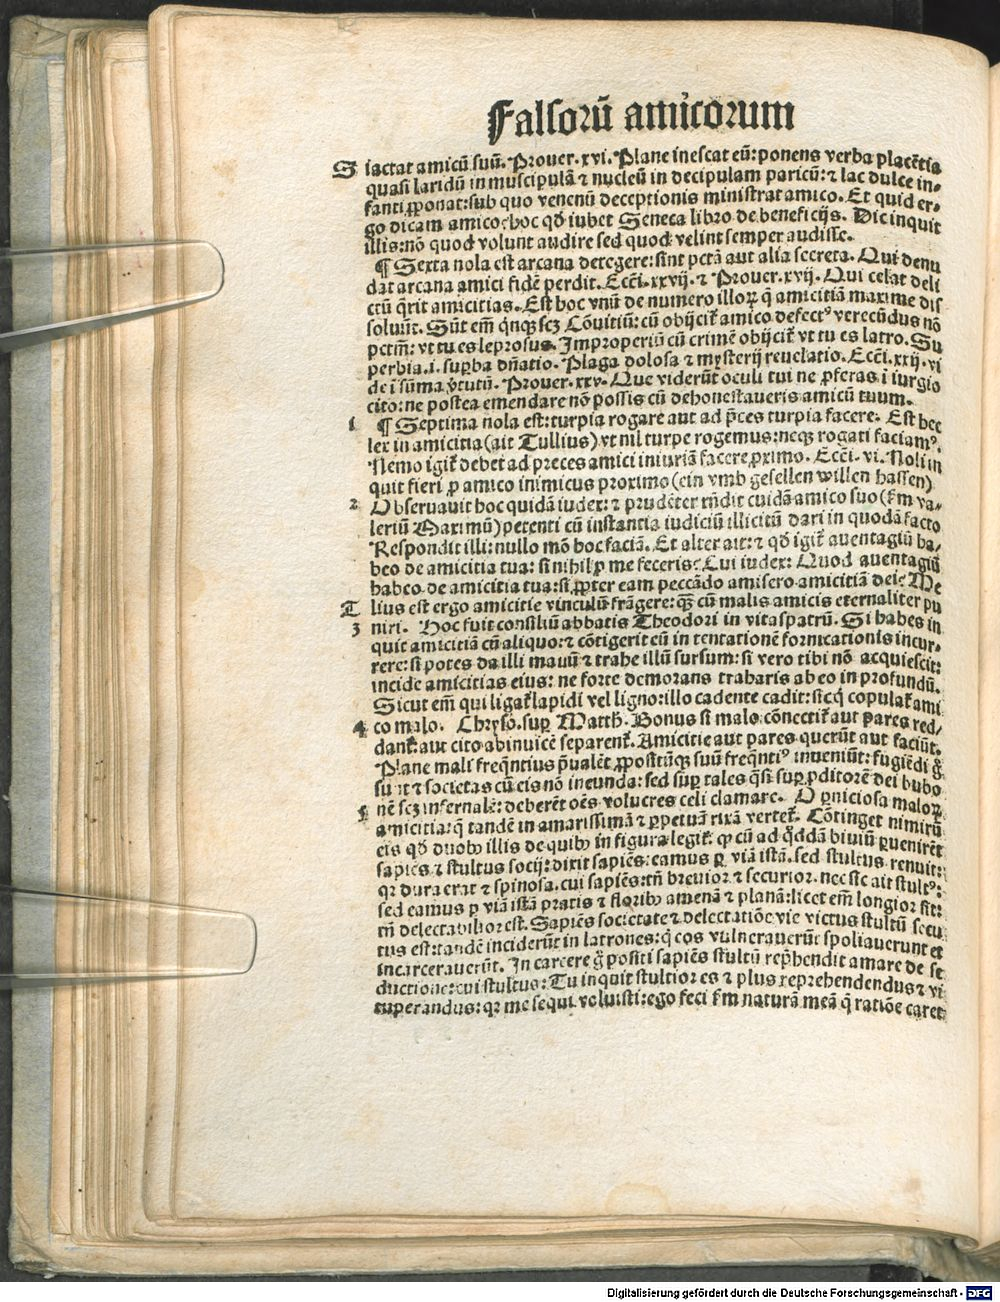 Falsorū amicorum
S lactat amicū suū. Prouer. xvi. Plane inescat eū: ponens verba placētia
quasi laridū in muscipulā ⁊ nucleū in decipulam paricū: ⁊ lac dulce in-
fanti ꝓponat: sub quo venenū deceptionis ministrat amico. Et quid er-
go dicam amico: hoc qđ iubet Seneca libro de beneficijs. Dic inquit
illis: nō quod volunt audire sed quod velint semper audisse.
¶ Sexta nola est arcana detegere: sint pctā aut alia secreta. Qui denu
dat arcana amici fidē perdit. Ecci. xxvij. ⁊ Prouer. xvij. Qui celat deli
ctū q̄rit amicitias. Est hoc vnū de numero illoꝝ q̄ amicitiā maxime dis
soluūt. Sūt em̄ qnqꝫ scꝫ Cōuitiū: cū obijcit̄ amico defectꝰ verecūdus nō
pctm̄: vt tu es leprosus. Improperiū cū crimē obijcit̄ vt tu es latro. Su
perbia .i. suꝑba dn̄atio. Plaga dolosa ⁊ mysterij reuelatio. Ecci. xxij. vi
de ī sūma v̓tutū. Prouer. xxv. Que viderūt oculi tui ne ꝓferas ī iurgio
cito: ne postea emendare nō possis cū dehonestaueris amicū tuum.
1 ¶ Septima nola est: turpia rogare aut ad p̄ces turpia facere. Est hec
lex in amicitia (ait Tullius) vt nil turpe rogemus: neqꝫ rogati faciamꝰ.
Nemo igit̄ debet ad preces amici iniuriā facere ꝓximo. Ecci. vi. Noli in
quit fieri ꝓ amico inimicus proximo (ein vmb gesellen willen hassen)
2 Obseruauit hoc quidā iudex: ⁊ prudēter rn̄dit cuidā amico suo (fm va-
leriū Maximū) petenti cū instantia iudiciū illicitū dari in quodā facto
Respondit illi: nullo mō hoc faciā. Et alter ait: ⁊ qđ igit̄ auentagiū ha-
beo de amicitia tua: si nihil ꝓ me feceris: Cui iudex: Quod auentagiū
habeo de amicitia tua: si ꝓpter eam peccādo amisero amicitiā dei: Me
T lius est ergo amicitie vinculū frāgere: qꝫ cū malis amicis eternaliter pu
3 niri. Hoc fuit consiliū abbatis Theodori in vitaspatrū. Si habes in
quit amicitiā cū aliquo: ⁊ cōtigerit eū in tentationē fornicationis incur-
rere: si potes da illi manū ⁊ trahe illū sursum: si vero tibi nō acquiescit:
incide amicitias eius: ne forte demorans traharis ab eo in profundū.
Sicut em̄ qui ligat̄ lapidi vel ligno: illo cadente cadit: sic q̄ copulat̄ ami
4 co malo. Chryso. suꝑ Matth. Bonus si malo cōnectit̄ aut pares red-
dant̄: aut cito abinuicē separent̄. Amicitie aut pares querūt aut faciūt.
Plane mali freq̄ntius p̄ualēt ꝓpositūqꝫ suū freq̄ntiꝰ inueniūt: fugiēdi g̊
sunt ⁊ societas cū eis nō ineunda: sed suꝑ tales q̄si suꝑ ꝓditorē dei bubo
5 nē scꝫ infernalē: deberēt oēs volucres celi clamare. O ꝑniciosa maloꝝ
amicitia: q̄ tandē in amarissimā ⁊ ꝑpetuā rixā vertet̄. Cōtinget nimirū
eis qđ duobꝫ illis de quibꝫ in figura legit̄. ꝙ cū ad q̄ddā biuiū ꝑuenirēt
sapiēs ⁊ stultus socij: dixit sapiēs: eamus ꝑ viā istā. sed stultus renuit:
qꝛ dura erat ⁊ spinosa. cui sapiēs: tn̄ breuior ⁊ securior. nec sic ait stultꝰ:
sed eamus ꝑ viā istā pratis ⁊ floribꝫ amenā ⁊ planā: licet em̄ longior sit:
tn̄ delectabilior est. Sapiēs societate ⁊ delectatiōe vie victus stultū secu
tus est: tandē inciderūt in latrones: q̄ eos vulnerauerūt spoliauerunt et
incarcerauerūt. In carcere g̊ positi sapiēs stultū rep̄hendit amare de se
ductione: cui stultus: Tu inquit stultior es ⁊ plus reprehendendus ⁊ vi
tuperandus: qꝛ me sequi voluisti: ego feci fm naturā meā q̄ ratiōe caret
Digitalisierung gefördert durch die Deutsche Forschungsgemeinschaft - DFG